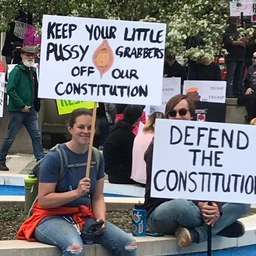 KEEP YOUR LITTLE
PUSSY GRABBERS
OFF OUR
CONSTITUTION
DEFEND
THE
CONSTITUTIO